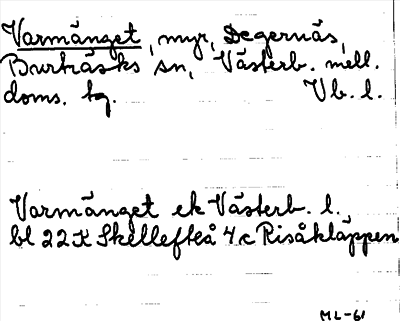 Varmänget, myr, Degernäs,
Burträsks sn, Västerb. mell.
doms. tg. Vb. l.
Varmänget ek Västerb. l.,
bl 22K Skellefteå 4c Risåkläppen
ML-61